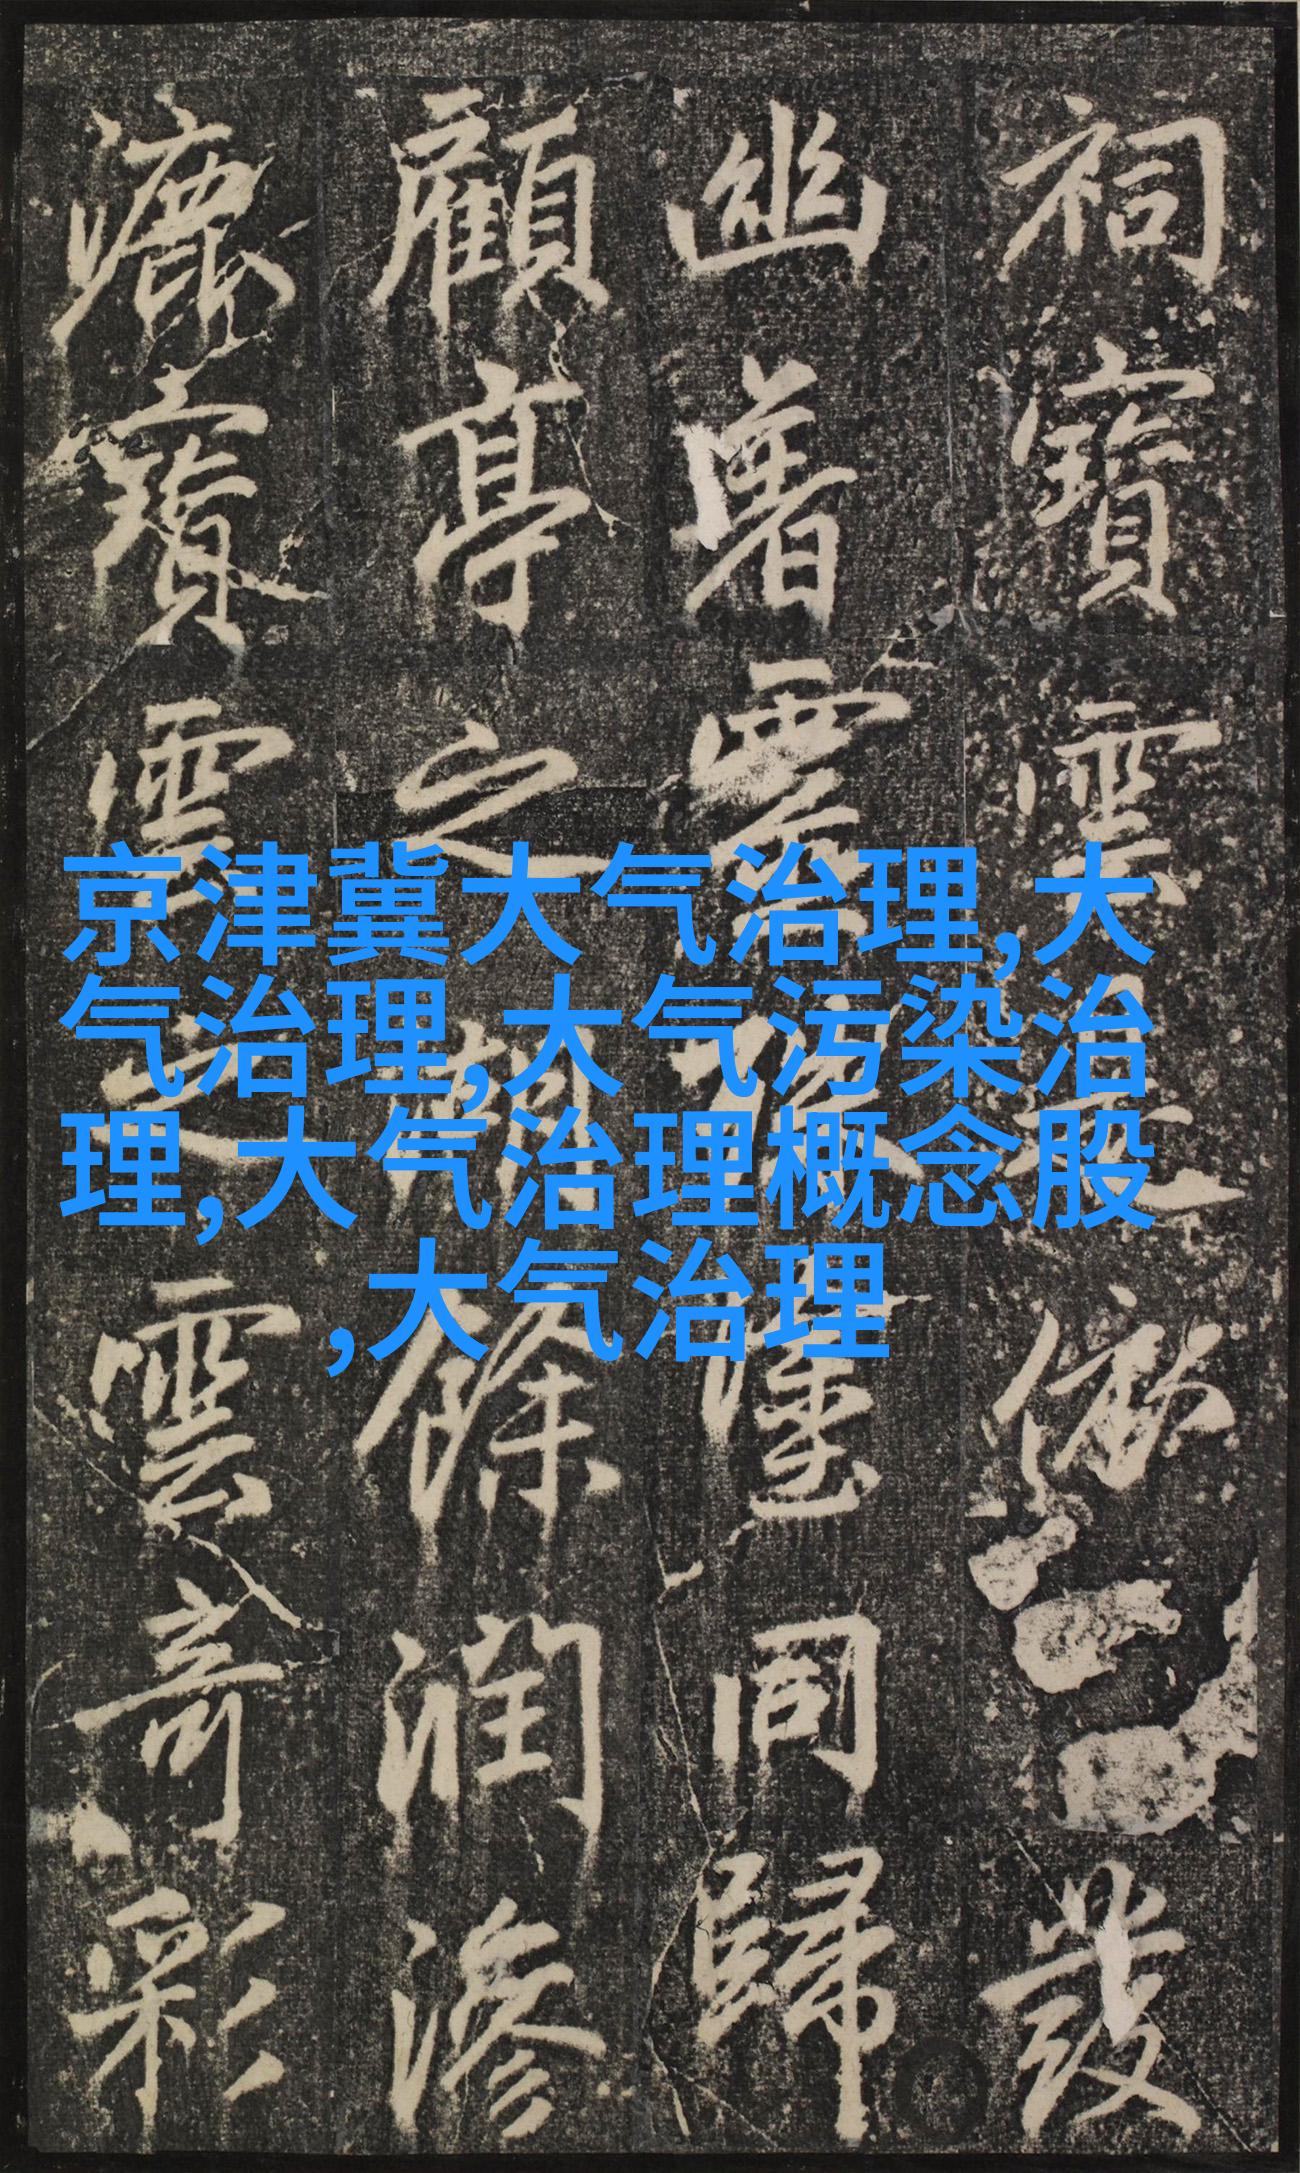 京津冀大气治理,大
气治理,大气污染治
理,大气治理概念股
,大气治理
祠寶雲發
幽署同歸
顧亭之餘潤滲
漉寶雲之雲奇彩